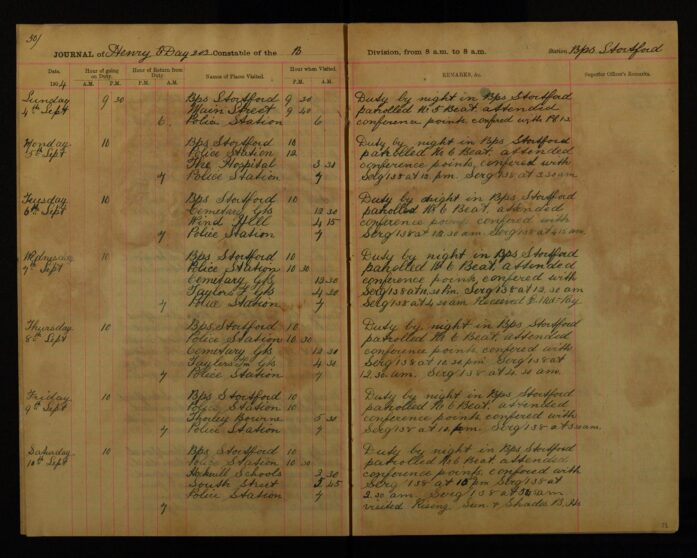 301
JOURNAL of Henry E Day 202 Constable of the B Division, from 8 a.m. to 8 a.m. Station, Bps Stortford
Date. Hour of going on Duty. Hour of Return from Duty. Names of Places Visited. Hour when Visited. REMARKS, &c. Superior Officer's Remarks.
1904 A.M. P.M. P.M. A.M. P.M. A.M.
Sunday 9 30 Bps Stortford 9 30 Duty by night in Bps Stortford
4th Sept Main Street 9 40 patrolled No 5 Beat, attended
6 Police Station 6 conference points, confered with PC 12
Monday 10 Bps Stortford 10 Duty by night in Bps Stortford
5th Sept Police Station 12 patrolled No 6 Beat, attended
The Hospital 3 30 conference points, confered with
7 Police Station 7 Serg 138 at 12. pm. Serg 138 at 3.30 am.
Tuesday 10 Bps Stortford 10 Duty by night in Bps Stortford
6th Sept Cemetary Gts 12 30 patrolled No 6 Beat, attended
Wind Hill 4 15 conference points confered with
7 Police Station 7 Serg 138 at 12.30 am. Serg 138 at 4.15 am.
Wednesday 10 Bps Stortford 10 Duty by night in Bps Stortford
7th Sept Police Station 10 30 patrolled No 6 Beat, attended
Cemetary Gts 12 30 conference points, confered with
Taylors Gts 4 30 Serg 138 at 10.30 Pm. Serg 138 at 12.30 am
7 Police Station 7 Serg 138 at 4.30 am Received
Thursday 10 Bps Stortford 10 Duty by night in Bps Stortford
8th Sept Police Station 10 30 patrolled No 6 Beat, attended
Cemetary Gts 12 30 conference points, confered with
Taylers Gts 4 30 Serg 138 at 10.30 pm. Serg 138 at
7 Police Station 7 12.30 am. Serg 138 at 4.30 am.
Friday 10 Bps Stortford 10 Duty by night in Bps Stortford
9th Sept Police Station 10 patrolled No 6 Beat, attended
Thorley Bourne 5 30 conference points, confered with
7 Police Station 7 Serg 138 at 10. pm. Serg 138 at 5.30 am.
Saturday 10 Bps Stortford 10 Duty by night in Bps Stortford
10th Sept Police Station 10 30 patrolled No 6 Beat attended
Hockerill Schools 2 30 conference points, confered with
South Street 5 45 Serg 138 at 10 pm Serg 138 at
Police Station 7 2.30 am. Serg 138 at am
7 visited Rising Sun &